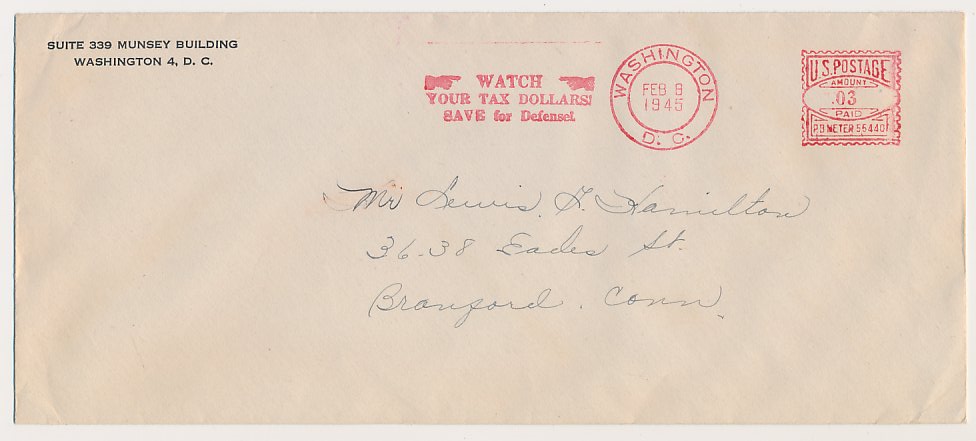 SUITE 339 MUNSEY BUILDING
WASHINGTON 4, D. C.
WATCH
YOUR TAX DOLLARS!
SAVE for Defense!
WASHINGTON
FEB 9
1945
D. C.
U.S. POSTAGE
AMOUNT
.03
PAID
P.B METER 56440
Mr Lewis. H. Hamilton
36-38 Eades St.
Branford. Conn.